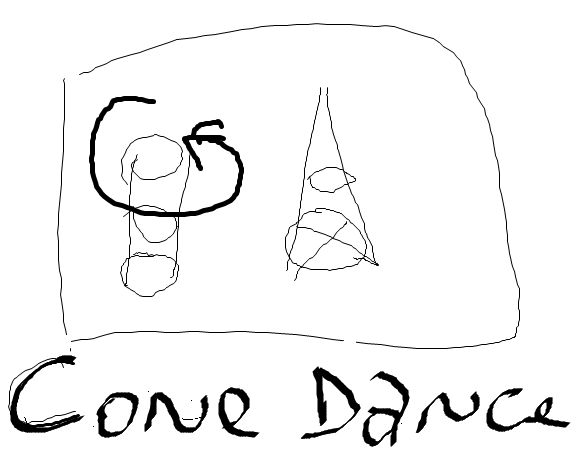 Cone Dance